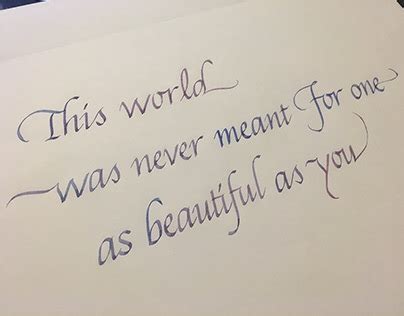 This world
was never meant for one
as beautiful as you